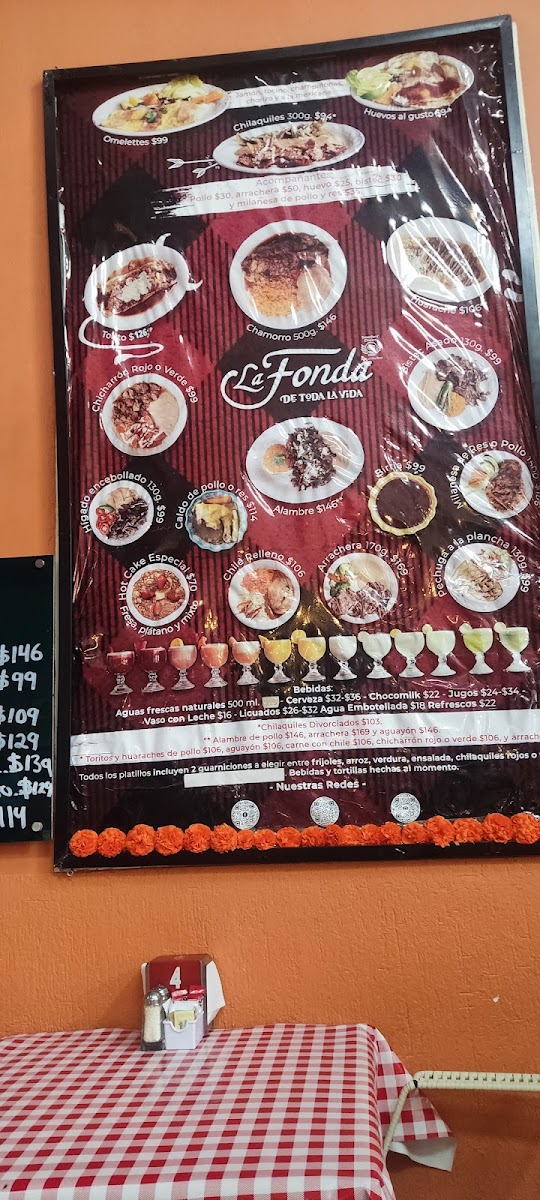 Jamón, tocino, champiñones,
chorizo y a la mexicana
Omelettes $99
Huevos al gusto $94
Chilaquiles 300g. $94*
Acompañantes:
pollo $30, arrachera $50, huevo $25, bistec $30
y milanesa de pollo y res $35.
Torito $126*
Chamorro 500g. $146
Huarache $106*
La Fonda
DE TODA LA VIDA
Chicharrón Rojo o Verde $99
Asado 130g. $99
Alambre $146**
Hígado encebollado 130g. $99
Caldo de pollo o res $114
Birria $99
Milanesa de Res o Pollo
Hot Cake Especial $70
Fresa, plátano y mixto
Chile Relleno $106
Arrachera 170g. $169
Pechuga a la plancha 130g. $99
Bebidas:
Aguas frescas naturales 500 ml. - Cerveza $32-$36 - Chocomilk $22 - Jugos $24-$34
Vaso con Leche $16 - Licuados $26-$32 Agua Embotellada $18 Refrescos $22
*Chilaquiles Divorciados $103.
** Alambre de pollo $146, arrachera $169 y aguayón $146.
* Toritos y huaraches de pollo $106, aguayón $106, carne con chile $106, chicharrón rojo o verde $106, y arrach
Todos los platillos incluyen 2 guarniciones a elegir entre frijoles, arroz, verdura, ensalada, chilaquiles rojos o
Bebidas y tortillas hechas al momento.
- Nuestras Redes -
$146
$99
$109
$129
$139
$129
114
4